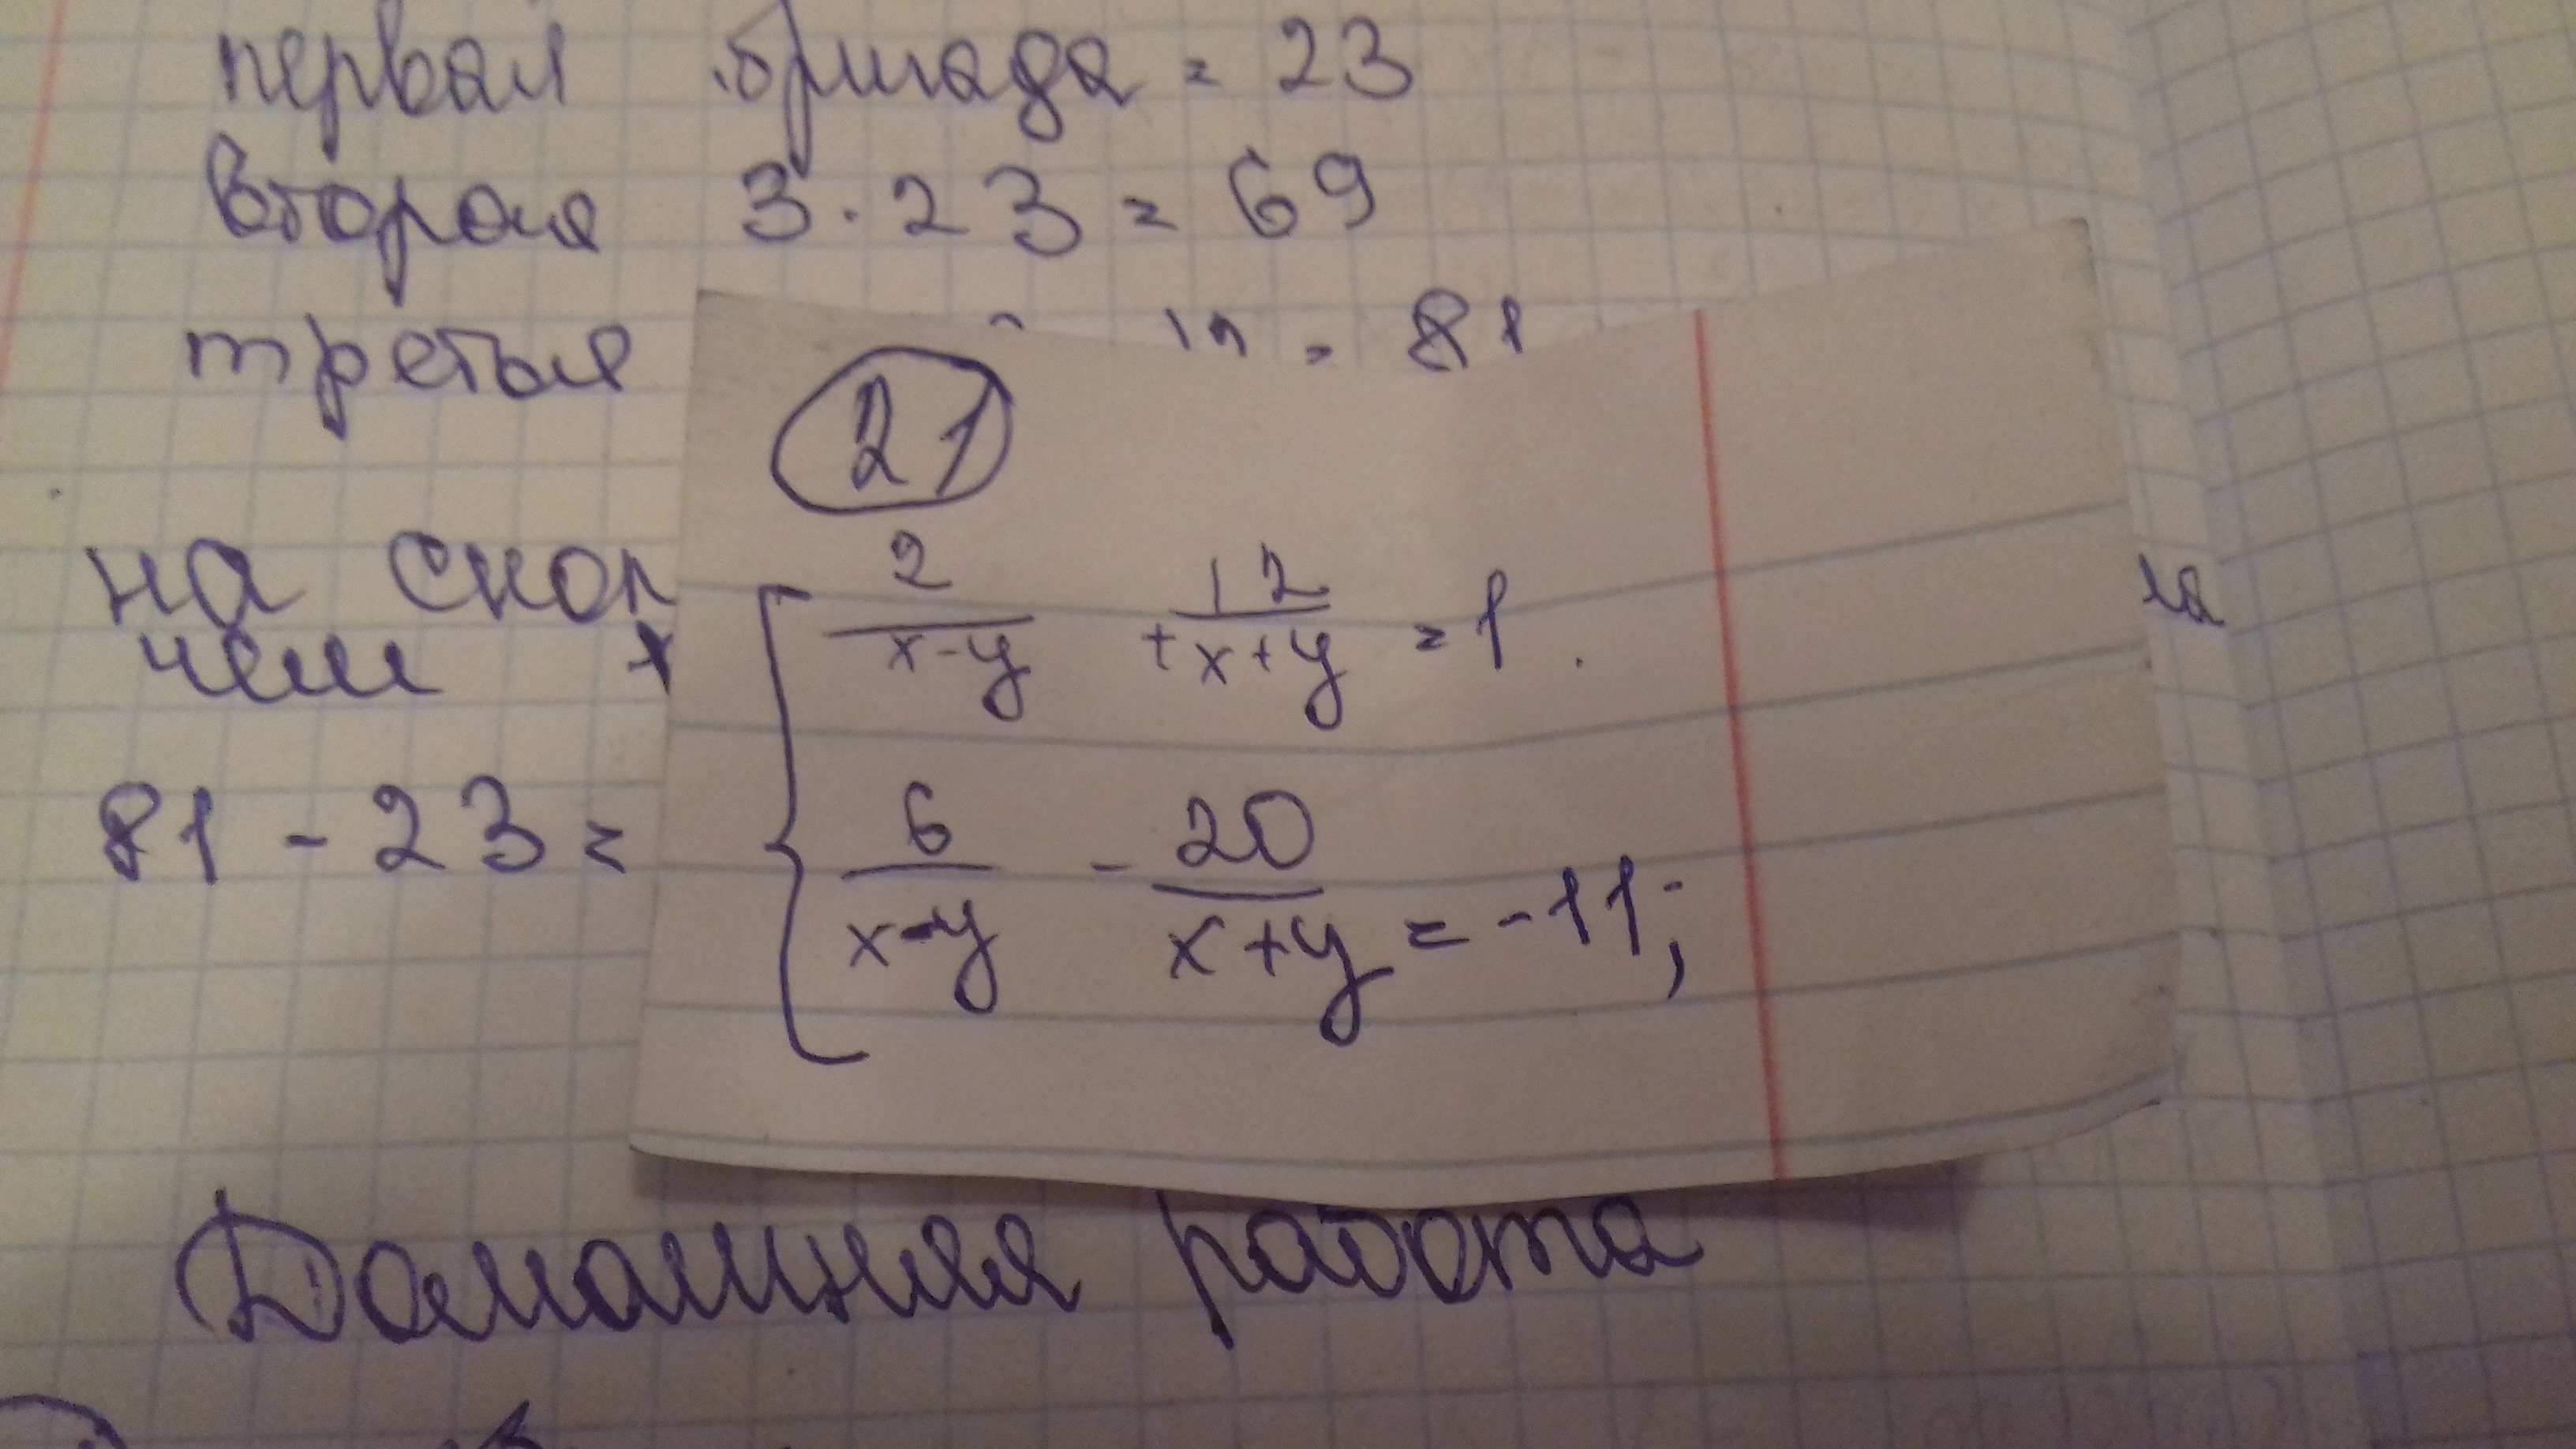 первая бригада = 23
вторая 3 · 23 = 69
третья = 81
на
чем
81 - 23 =
21
2/(x-y) + 12/(x+y) = 1.
6/(x-y) - 20/(x+y) = -11;
Домашняя работа